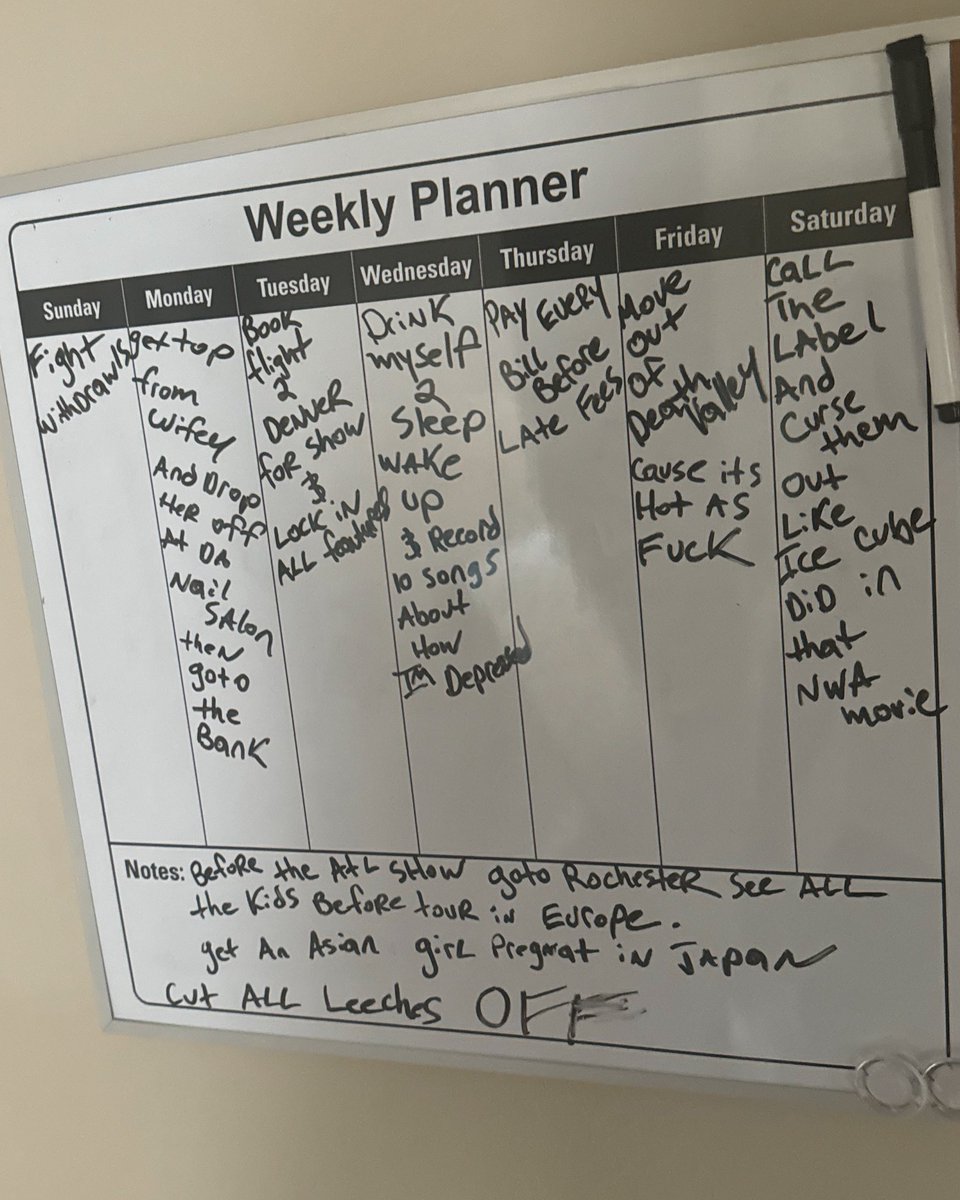 Weekly Planner
Sunday
Fight
withdrawls
Monday
Get top
from
Wifey
And Drop
Her off
At DA
Nail
SAlon
then
goto
the
BANK
Tuesday
Book
flight
2
DENVER
for show
&
Lock in
ALL features
Wednesday
Drink
myself
2
Sleep
WAKE
up
& Record
10 songs
About
How
Im Depressed
Thursday
PAY EVERY
Bill
Before
LAte Fees
Friday
Move
out
of
Death
Valley
Cause its
Hot AS
Fuck
Saturday
CALL
The
LAbel
And
Curse
them
out
Like
Ice Cube
DiD in
that
NWA
movie
Notes: Before the AtL SHow goto Rochester See ALL
the Kids Before tour in Europe.
get An Asian girL Pregnat in JApAN
Cut ALL Leeches OFF